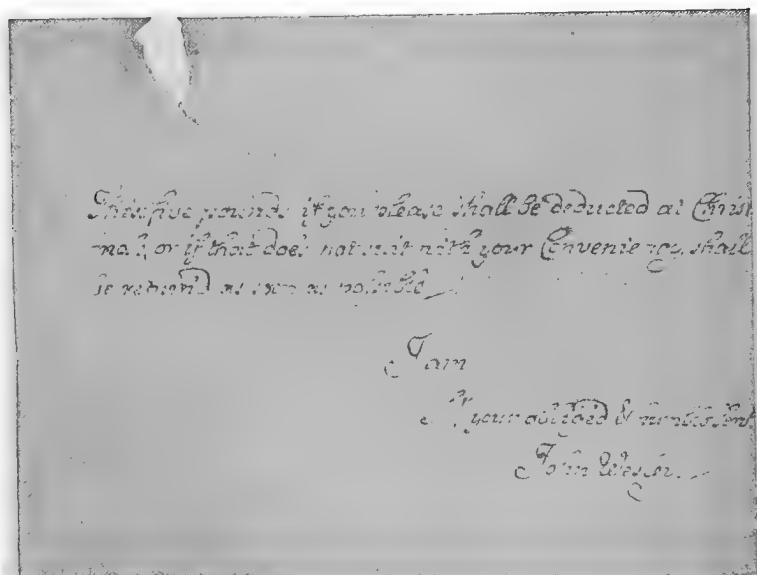 This five pounds if you please shall be deducted at Christ
mas, or if that does not suit with your Conveniency, shall
be return'd as soon as possible
I am
Sr your obliged & humble Servt
John Wesley.